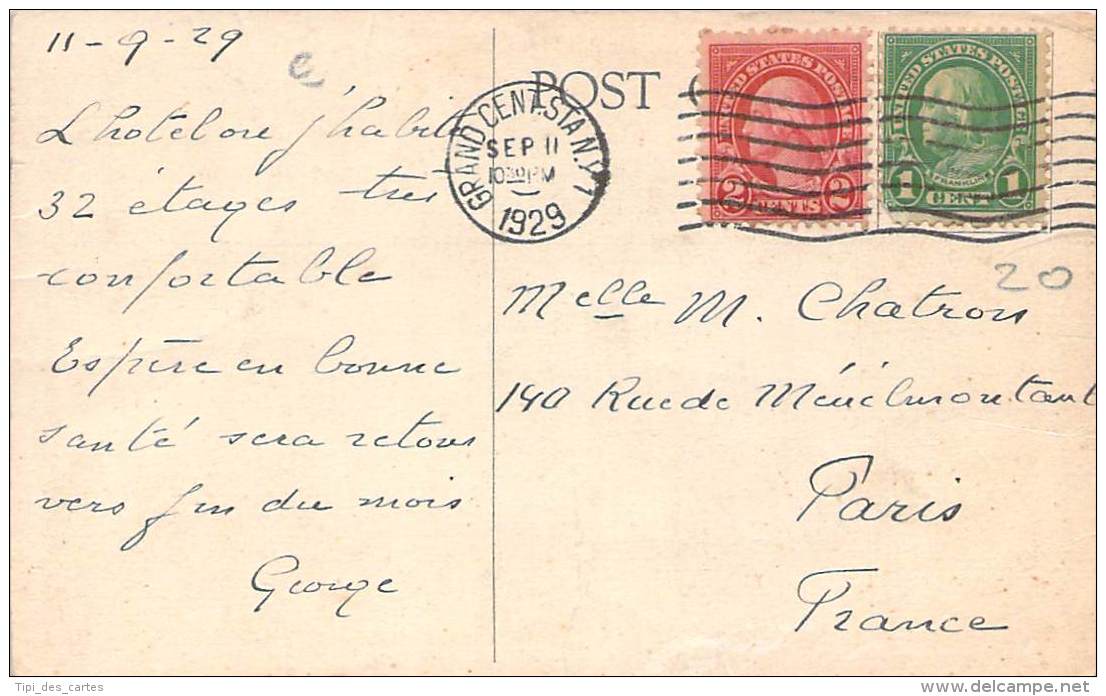 11-9-29
L'hotel ou j'habite
32 étages très
confortable
Espère en bonne
santé sera retour
vers fin du mois
George
POST C
GRAND CENT. STA. N.Y.
SEP 11
10 30 PM
1929
UNITED STATES POSTAGE
2 CENTS 2
UNITED STATES POSTAGE
FRANKLIN
1 CENT 1
20
Melle M. Chatron
140 Rue de Ménilmontant
Paris
France
Tipi_des_cartes
www.delcampe.net